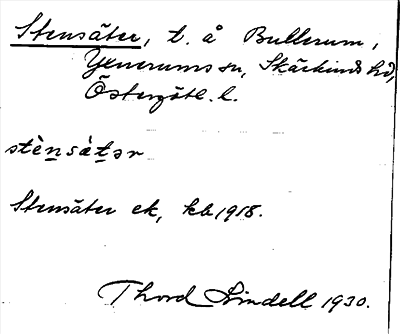 Stensäter, t. å Bullerum,
Yxnerums sn, Skärkinds hd,
Östergötl. l.
stènsàtər
Stensäter ek, kb 1918.
Thord Lindell 1930.